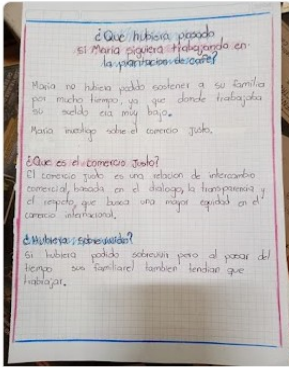 ¿Que hubiera pasado
si Maria siguiera trabajando en
la plantacion de café?
Maria no hubiera podido sostener a su familia
por mucho tiempo, ya que donde trabajaba
su sueldo era muy bajo.
Maria investigo sobre el comercio justo.
¿Que es el comercio justo?
El comercio justo es una relacion de intercambio
comercial, basada en el dialogo, la transparencia y
el respeto, que busca una mayor equidad en el
comercio internacional.
¿Hubiera sobrevivido?
Si hubiera podido sobrevivir pero al pasar del
tiempo sus familiares tambien tendian que
trabajar.